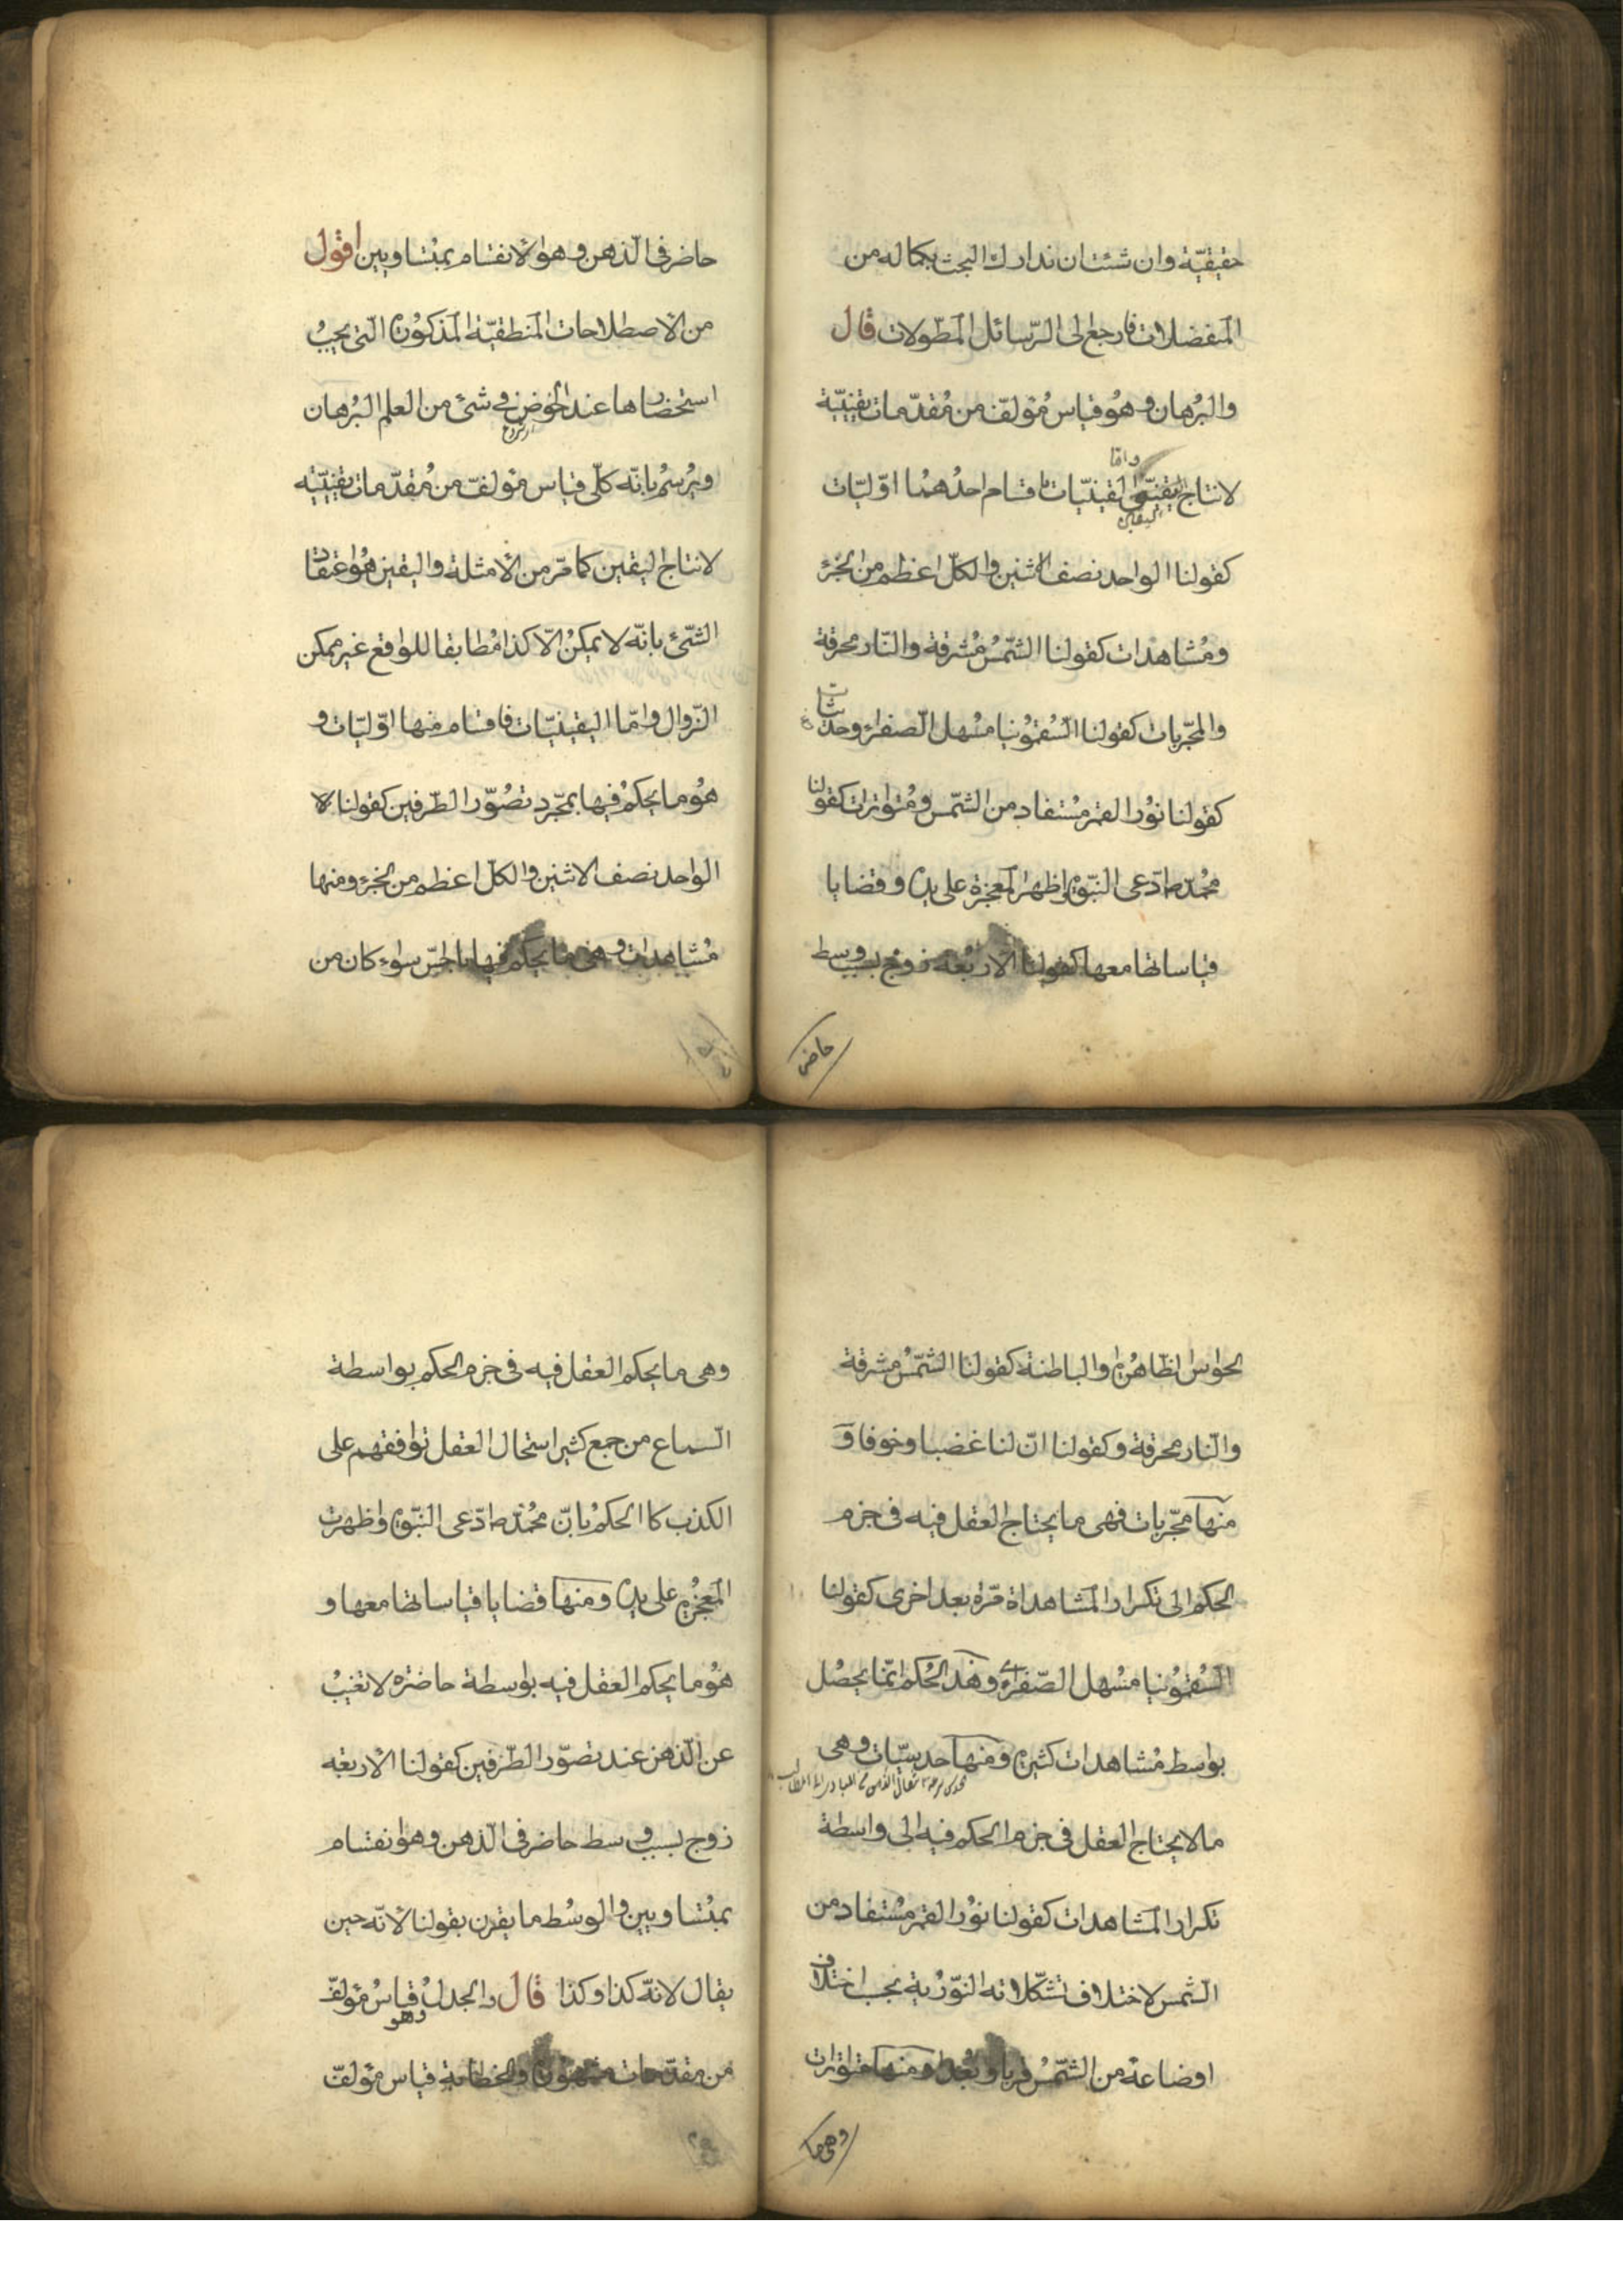 حقيقيّة وان شئت ان ندارك البحث بكماله من
المنفصلات فارجع الى الرّسائل المطولات قال
والبرهان وهو قياس مؤلّف من مقدّمات يقينيّة
لانتاج اليقين واما اليقينيّات فاقسام احدهما اوّليّات
كقولنا الواحد نصف الاثنين والكلّ اعظم من الجزء
ومشاهدات كقولنا الشّمس مشرقة والنّار محرقة
والمجّربات كقولنا السّقمونيا مسهل الصّفراء وحدثيات
كقولنا نور القمر مستفاد من الشّمس ومتواترات كقولنا
محمّد ص ادّعى النّبوة واظهر المعجزة على يده وقضايا
قياساتها معها كقولنا الاربعة زوج بسبب وسط
حاضر
حاضر فى الذّهن وهو الانقسام بمتساويين اقول
من الاصطلاحات المنطقيّة المذكورة الّتى يجب
استحضارها عند الخوض فى شئ من العلم البرهان
ويرسم بانّه كلّى قياس مؤلفّ من مقدّمات يقينيّه
لانتاج اليقين كما مرّ من الأمثلة واليقين هو اعتقاد
الشّئ بانّه لا يمكن الّا كذا مطابقا للواقع غير ممكن
الزّوال وامّا اليقينيّات فاقسام منها اوّليّات و
هو ما يحكم فيها بمجّرد تصوّر الطّرفين كقولنا
الواحد نصف الاثنين والكلّ اعظم من الجزء ومنها
مشاهدات وهى ما يحكم فيها بالحسّ سواء كان من
الحواس الظاهرة والباطنة كقولنا الشّمس مشرقة
والنّار محرقة وكقولنا انّ لنا غضبا وخوفا و
منها مجّربات فهى ما يحتاج العقل فيه فى جزم
الحكم الى تكرار المشاهداة مرّة بعد اخرى كقولنا
السّقمونيا مسهل الصّفراء وهذ الحكم انّما يحصل
بوسط مشاهدات كثيرة ومنها حدسيّات وهى
ما لا يحتاج العقل فى جزم الحكم فيه الى واسطة
تكرار المشاهدات كقولنا نور القمر مستفاد من
الشّمس لاختلاف تشكّلاته النّوريّة بحسب اختلاف
اوضاعه من الشّمس قربا وبعدا ومنها متواترات
وهى ما
وهى ما يحكم العقل فيه فى جزم الحكم بواسطة
السّماع من جمع كثير استحال العقل توافقهم على
الكذب كا الحكم بانّ محمّد ص ادّعى النّبوة واظهرت
المعجزة على يده ومنها قضايا قياساتها معها و
هو ما يحكم العقل فيه بوسطة حاضرة لا تغيب
عن الذّهن عند تصوّر الطّرفين كقولنا الأربعه
زوج بسبب وسط حاضر فى الذّهن وهو انقسام
بمتساويين والوسط ما يقرن بقولنا لأنّه حين
يقال لانّه كذا وكذا قال والجدل وهو قياس مؤلفّ
من مقدّمات مشهورة والخطابة قياس مؤلفّ